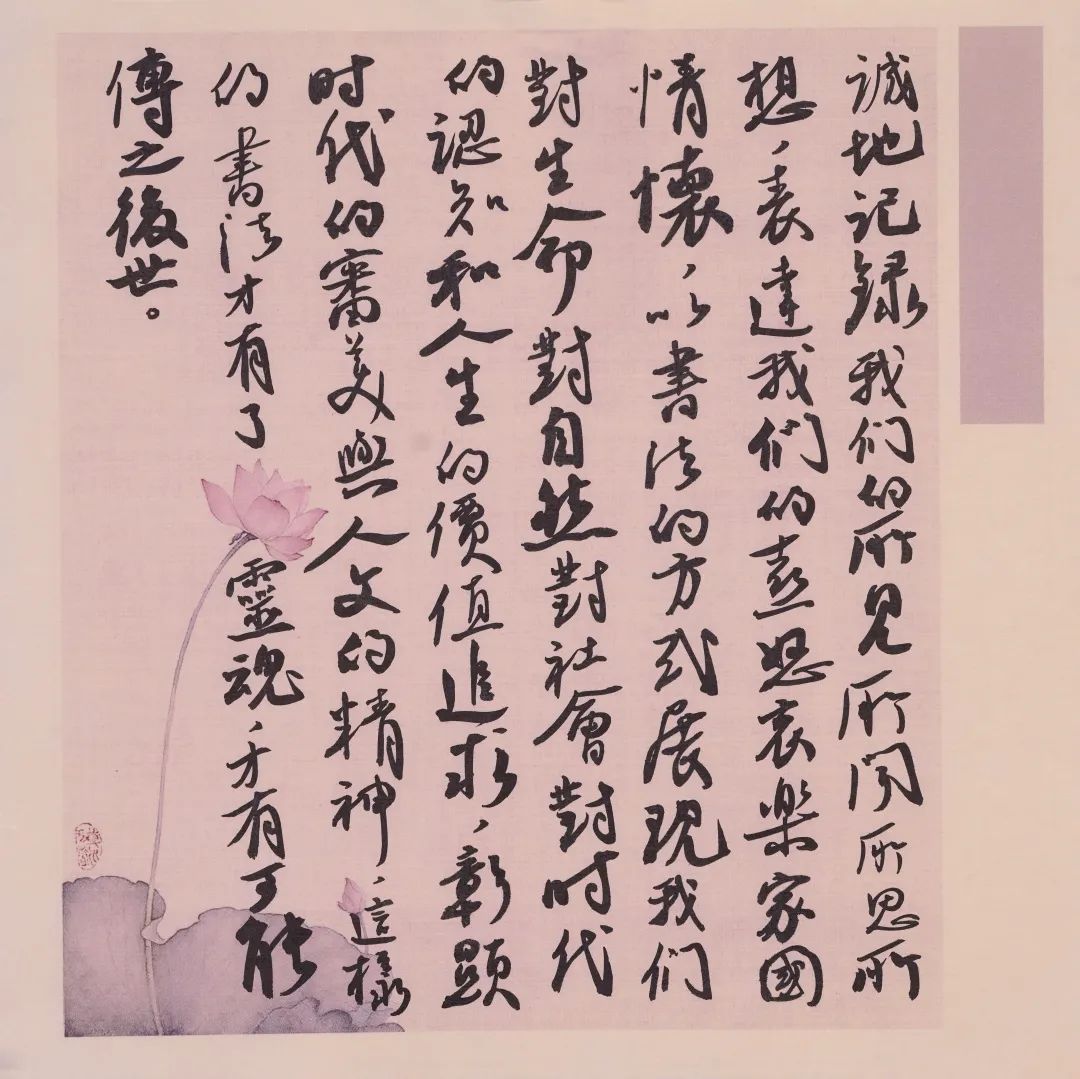 誠地记録我们的所見所闻所思所
想、表達我们的喜怒哀樂家國
情懷、以書法的方式展現我们
對生命對自然對社會對时代
的認知和人生的價值追求、彰顯
时代的審美與人文的精神、這樣
的書法才有了靈魂、才有可能
傳之後世。